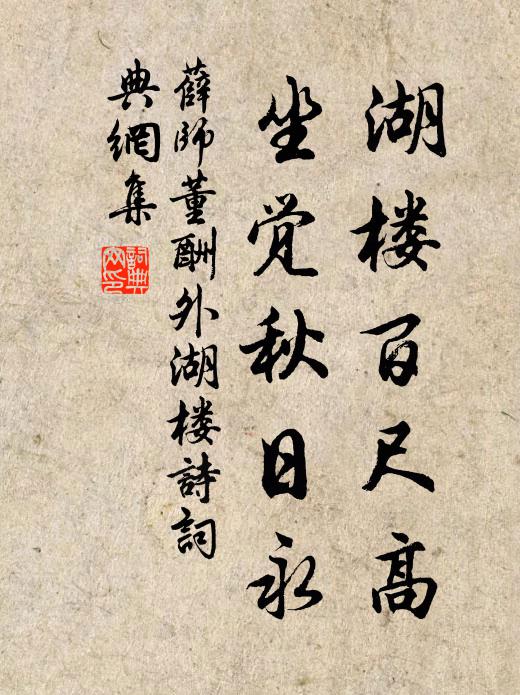 湖楼百尺高
坐觉秋日永
薛師董酬外湖楼詩詞
典網集
詞典
网印